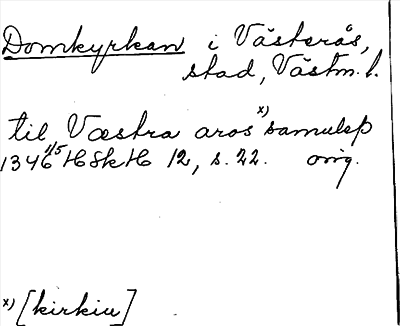 Domkyrkan i Västerås,
stad, Västm. l.
til Væstra aros x) samulep
1346 1/5 HSkH 12, s. 22. orig.
x) [kirkiu]